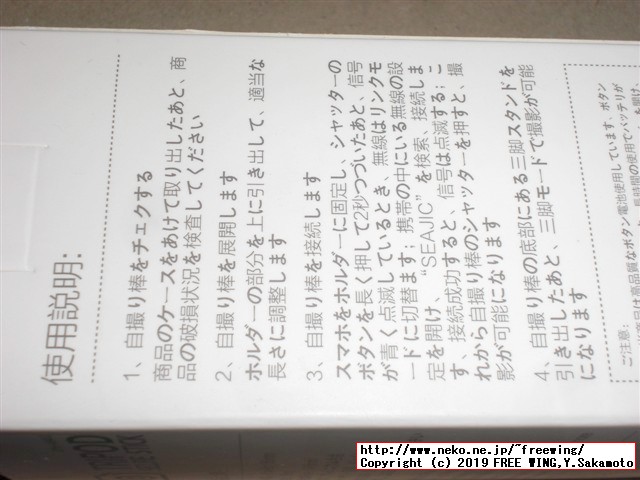 使用説明:
1、自撮り棒をチェクする
商品のケースをあけて取り出したあと、商
品の破損状況を検査してください
2、自撮り棒を展開します
ホルダーの部分を上に引き出して、適当な
長さに調整します
3、自撮り棒を接続します
スマホをホルダーに固定し、シャッターの
ボタンを長く押して2秒つづいたあと、信号
が青く点滅しているとき、無線はリンクモ
ードに切替ます；携帯の中にいる無線の設
定を開け、“SEAJIC”を検索、接続しま
す、接続成功すると、信号は点滅する；こ
れから自撮り棒のシャッターを押すと、撮
影が可能になります
4、自撮り棒の底部にある三脚スタンドを
引き出したあと、三脚モードで撮影が可能
になります
ご注意：
品質なボタン電池使用しています、ボタン
長時間の使用でバッテリが
TRIPOD
STICK
http://www.neko.ne.jp/~freewing/
Copyright (c) 2019 FREE WING,Y.Sakamoto